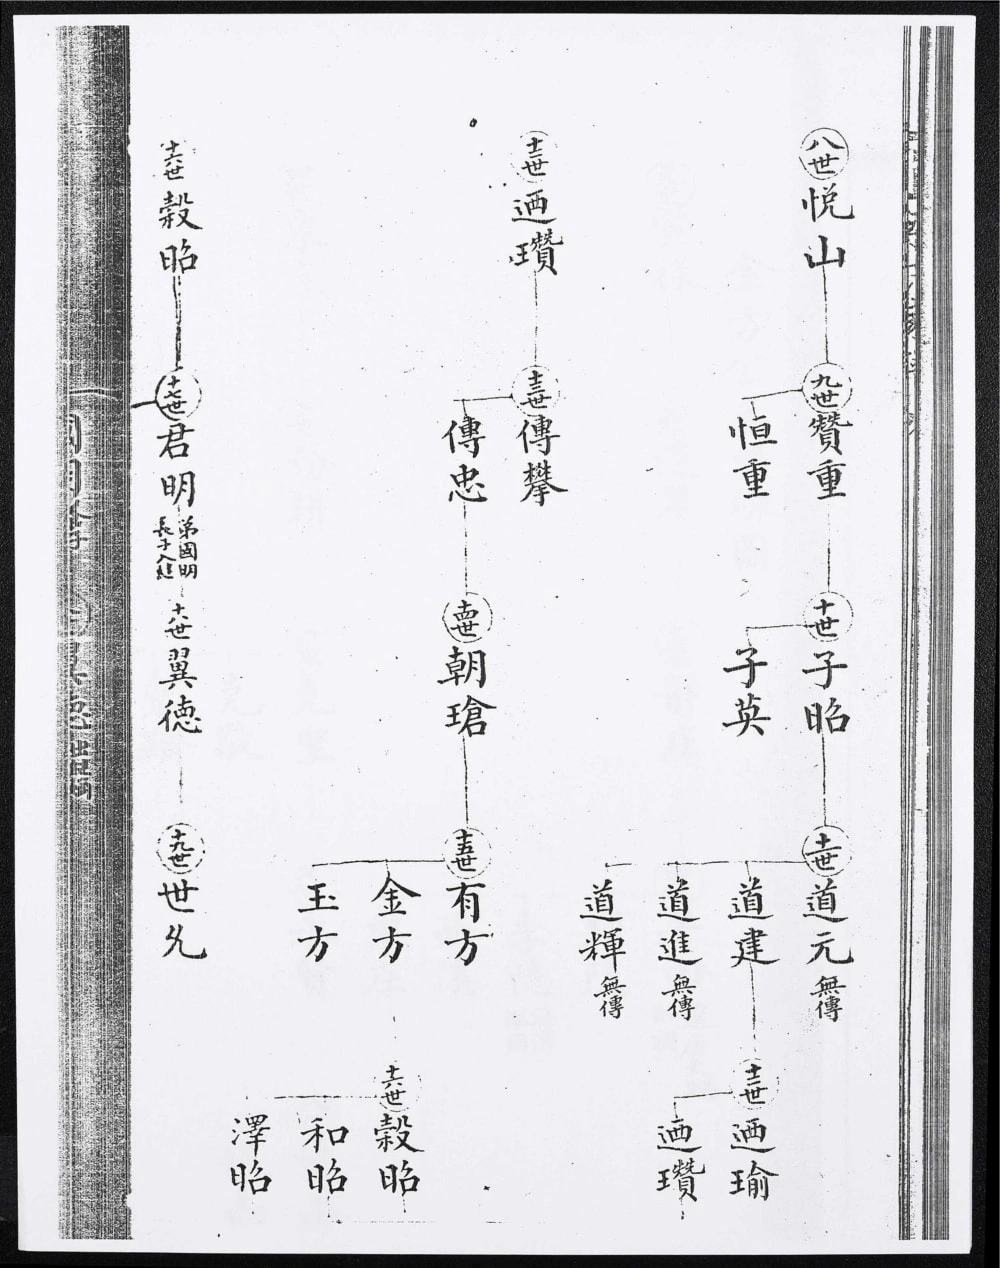 八世
悦山
九世
贊重
恒重
十世
子昭
子英
十一世
道元 無傳
道建
道進 無傳
道輝 無傳
十二世
迺瑜
迺瓚
十二世
迺瓚
十三世
傳攀
傳忠
十四世
朝瑲
十五世
有方
金方
玉方
十六世
穀昭
和昭
澤昭
十六世
穀昭
十七世
君明
弟國明
長子入繼
十八世
翼德
十九世
世允